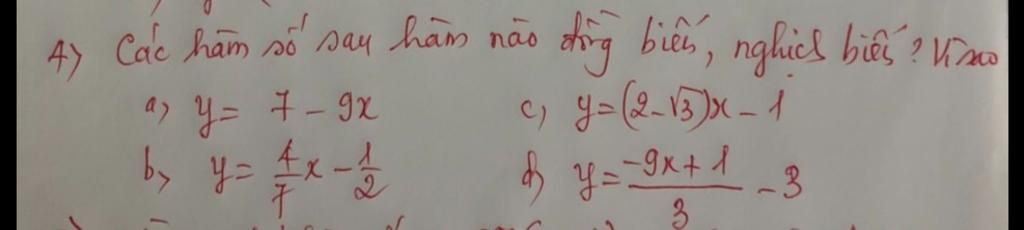 4) Các hàm số sau hàm nào đồng biến, nghịch biến? Vì sao
a) y = 7 - 9x c) y = (2-√3)x - 1
b) y = 4/7 x - 1/2 d) y = (-9x + 1)/3 - 3